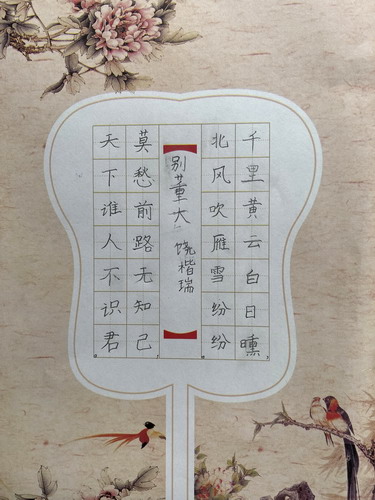 千里黄云白日曛
北风吹雁雪纷纷
别董大
饶楷瑞
莫愁前路无知己
天下谁人不识君